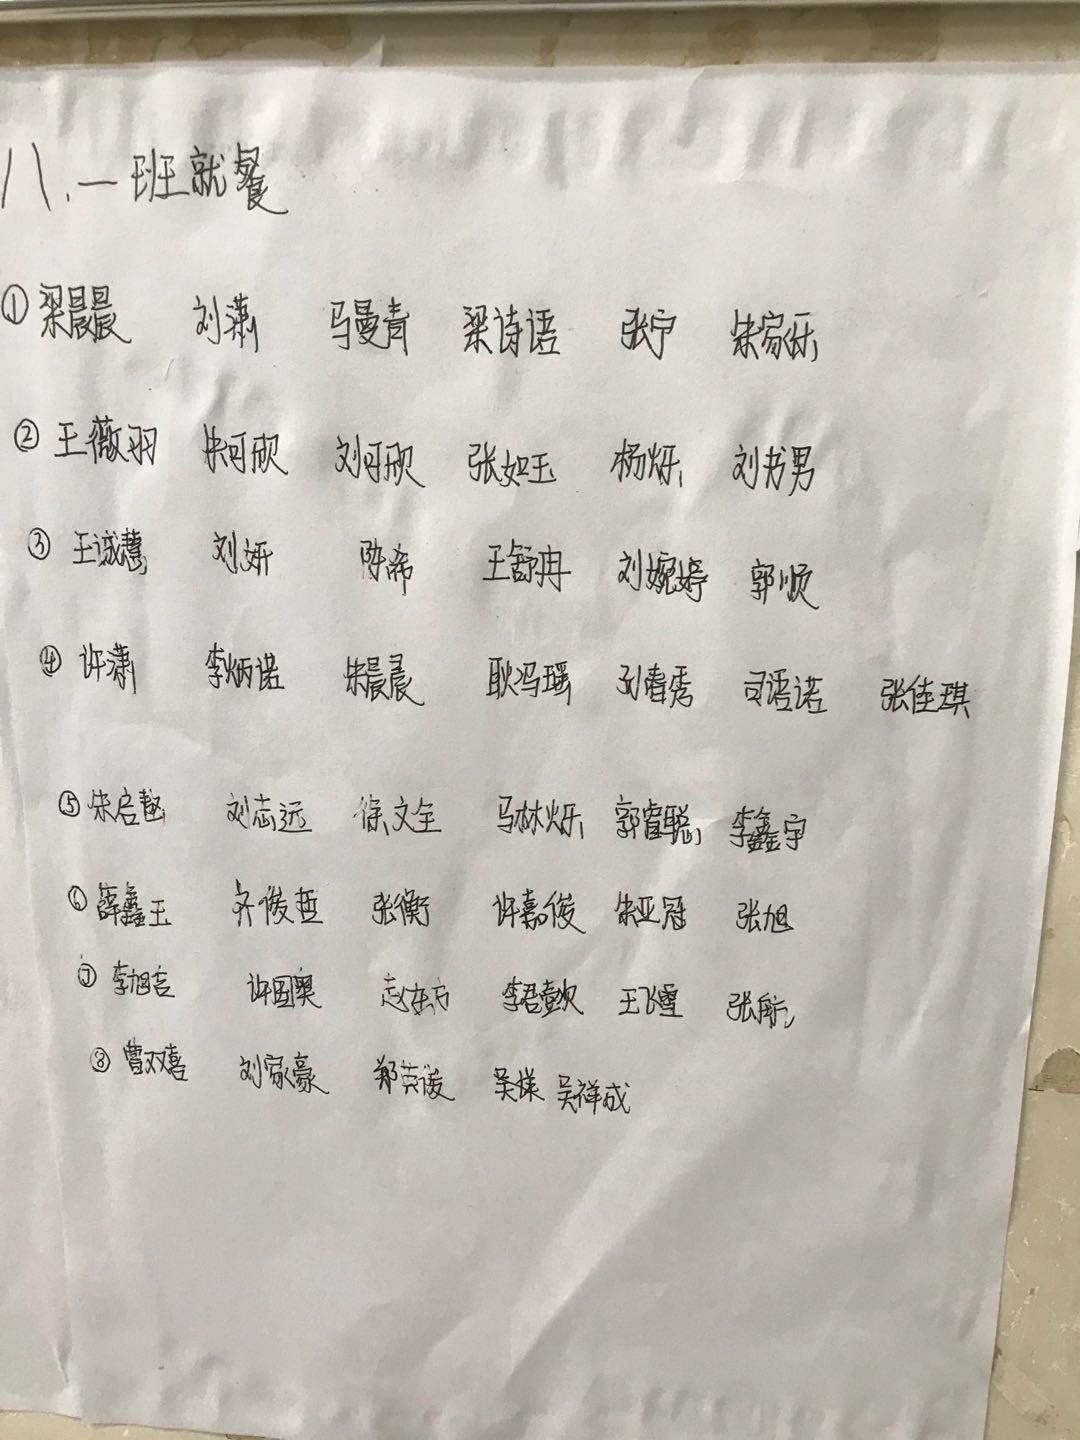 八.一班就餐
①梁晨晨 刘潇 马曼青 梁诗语 张宁 朱家乐
②王薇羽 朱可欣 刘可欣 张如玉 杨烁 刘书男
③王诚慧 刘妍 陈希 王舒冉 刘婉婷 郭顺
④许潇 李炳诺 朱晨晨 耿冯瑶 孙春秀 司语诺 张佳琪
⑤朱启 刘志远 徐文全 马林烁 郭睿聪 李鑫宇
⑥薛鑫玉 齐俊哲 张衡 许嘉俊 朱亚冠 张旭
⑦李旭言 许国奥 赵东方 李君 王飞 张航
⑧曹双喜 刘家豪 郑英俊 吴 吴祥成